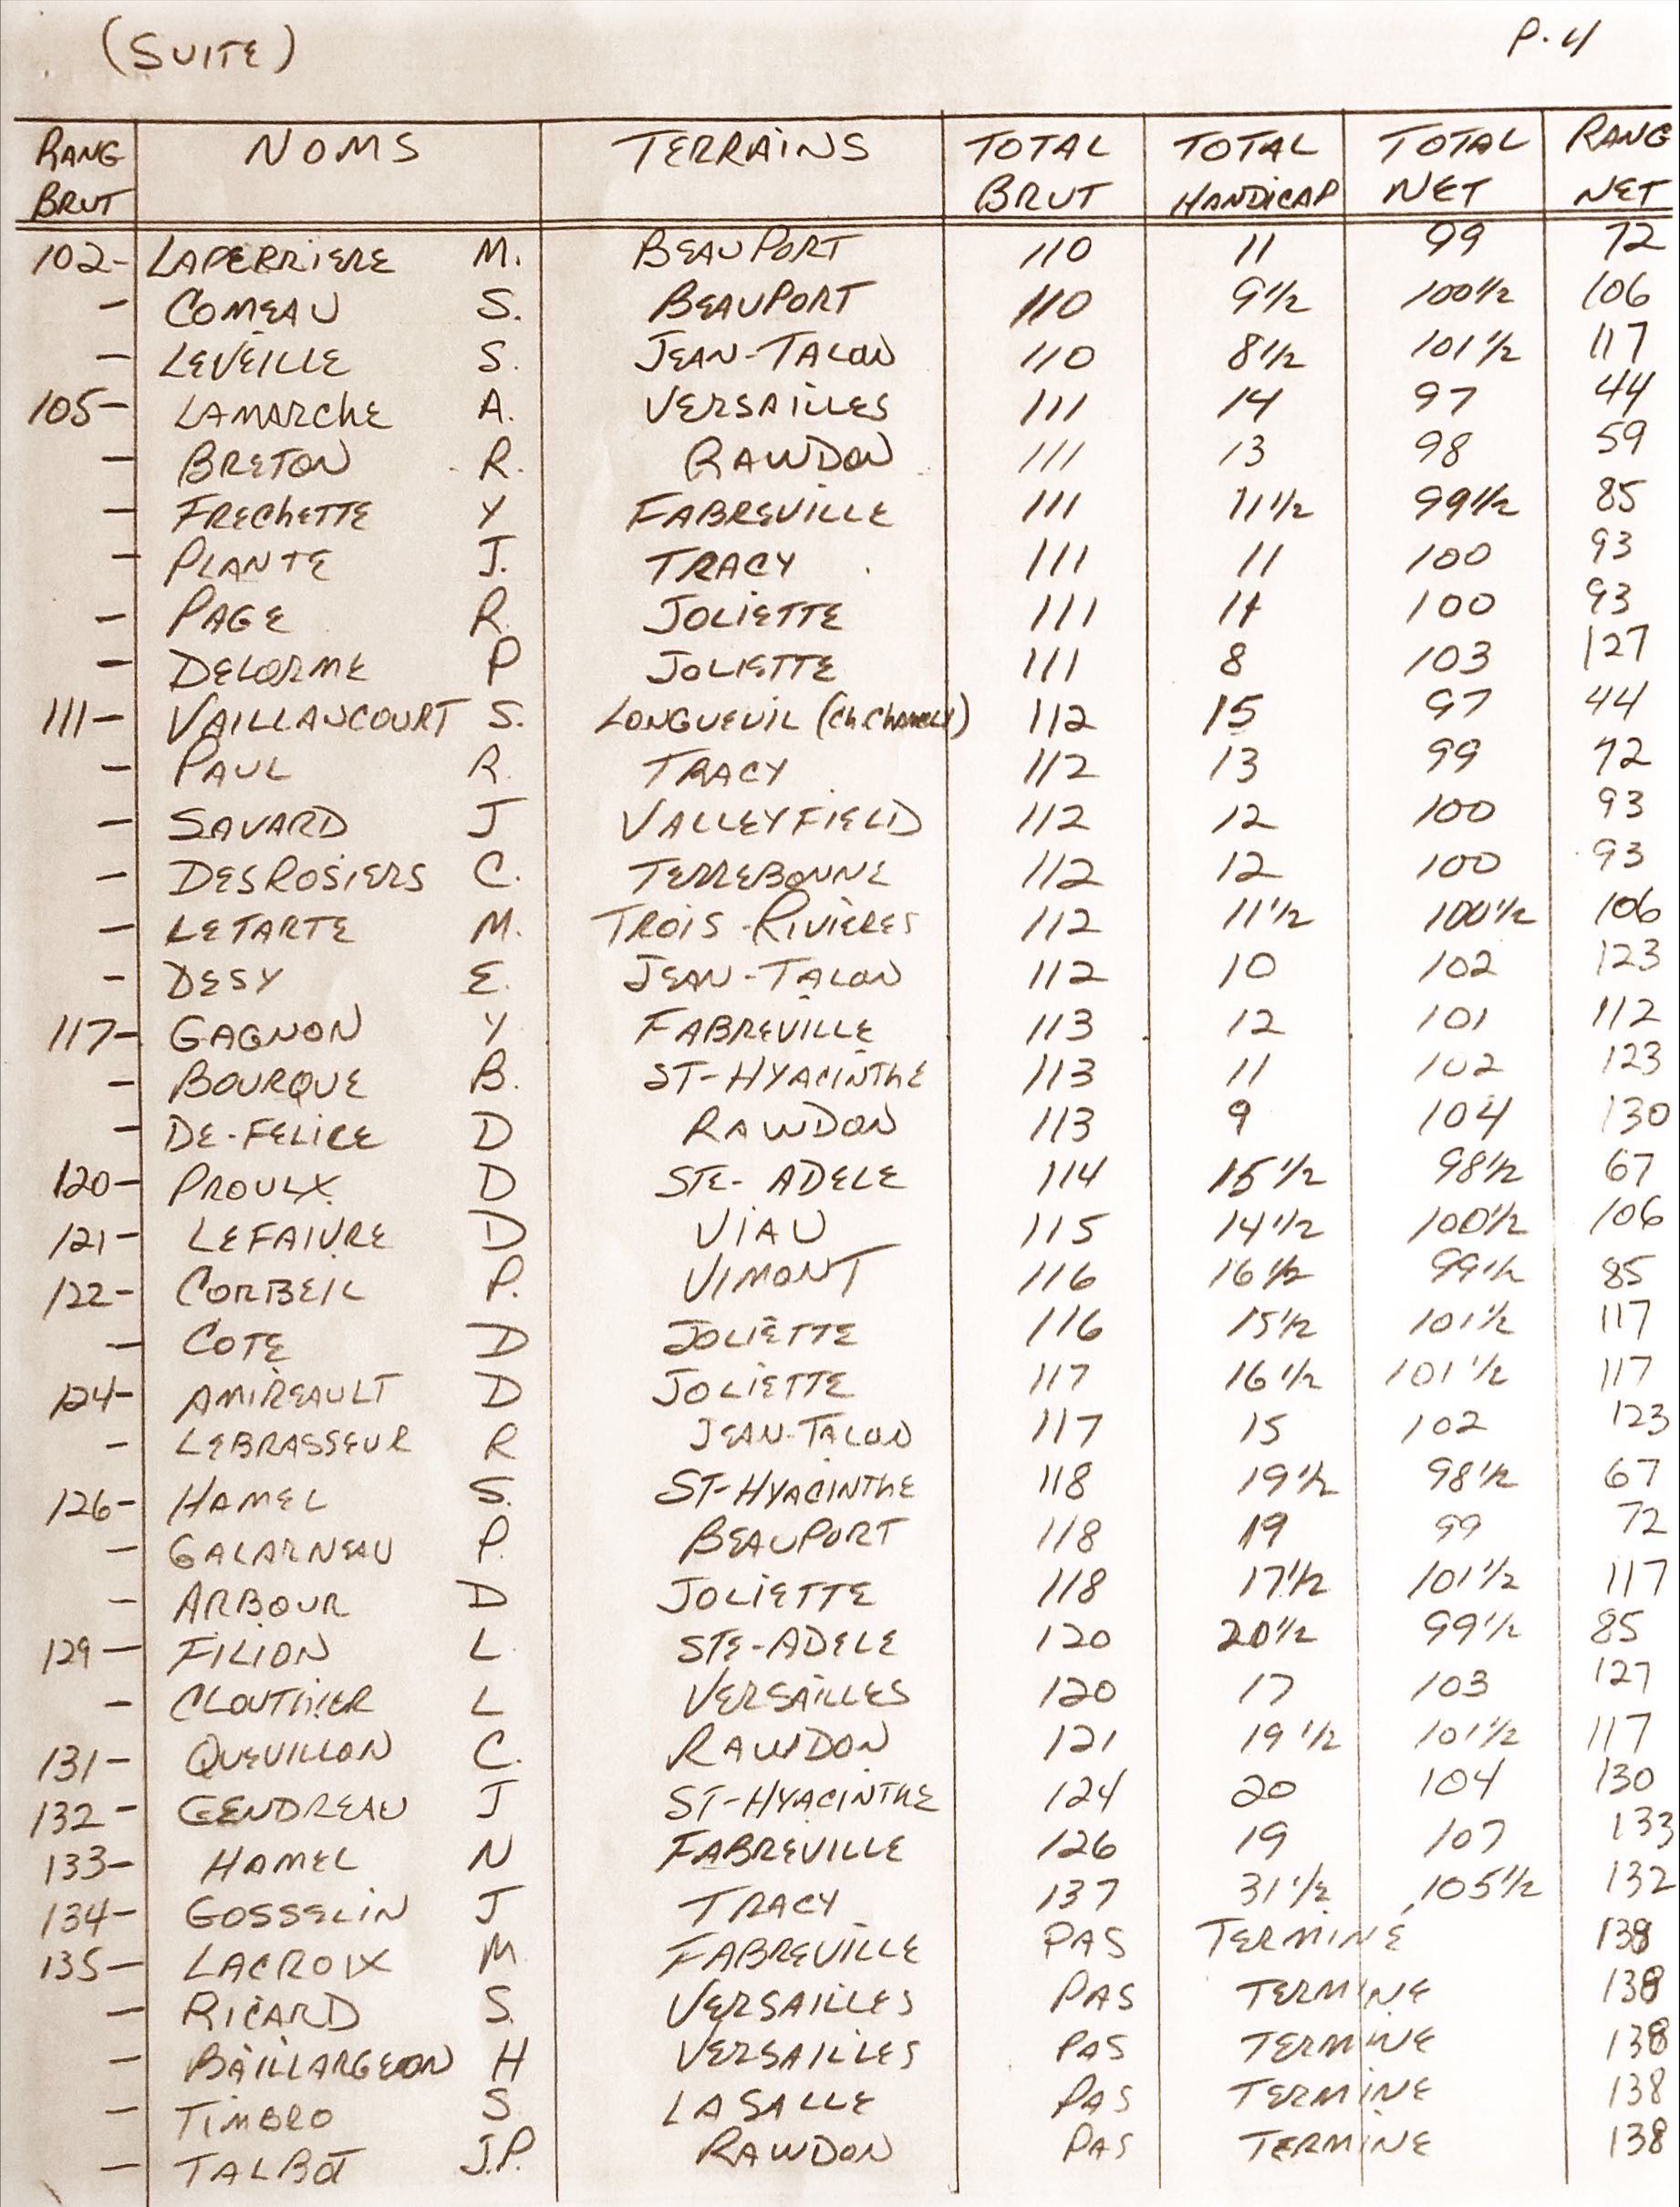 (SUITE) P. 4
RANG BRUT NOMS TERRAINS TOTAL BRUT TOTAL HANDICAP TOTAL NET RANG NET
102- LAPERRIERE M. BEAUPORT 110 11 99 72
- COMEAU S. BEAUPORT 110 9 1/2 100 1/2 106
- LEVEILLE S. JEAN-TALON 110 8 1/2 101 1/2 117
105- LAMARChE A. VERSAILLES 111 14 97 44
- BRETON R. RAWDON 111 13 98 59
- FREChETTE Y FABREVILLE 111 11 1/2 99 1/2 85
- PLANTE J. TRACY 111 11 100 93
- PAGE R. JOLIETTE 111 11 100 93
- DELORME P JOLIETTE 111 8 103 127
111- VAILLANCOURT S. LONGUEUIL (Ch. Chambly) 112 15 97 44
- PAUL R. TRACY 112 13 99 72
- SAVARD J VALLEYFIELD 112 12 100 93
- DESROSIERS C. TERREBONNE 112 12 100 93
- LETARTE M. TROIS-RIVIÈRES 112 11 1/2 100 1/2 106
- DESY E. JEAN-TALON 112 10 102 123
117- GAGNON Y FABREVILLE 113 12 101 112
- BOURQUE B. ST-HYACINThE 113 11 102 123
- DE-FELICE D RAWDON 113 9 104 130
120- PROULX D STE-ADELE 114 15 1/2 98 1/2 67
121- LEFAIVRE D VIAU 115 14 1/2 100 1/2 106
122- CORBEIL P. VIMONT 116 16 1/2 99 1/2 85
- COTE D JOLIETTE 116 15 1/2 101 1/2 117
124- AMIREAULT D JOLIETTE 117 16 1/2 101 1/2 117
- LEBRASSEUR R JEAN-TALON 117 15 102 123
126- HAMEL S. ST-HYACINThE 118 19 1/2 98 1/2 67
- GALARNEAU P. BEAUPORT 118 19 99 72
- ARBOUR D JOLIETTE 118 17 1/2 101 1/2 117
129- FILION L. STE-ADELE 120 20 1/2 99 1/2 85
- CLOUTHIER L VERSAILLES 120 17 103 127
131- QUEVILLON C. RAWDON 121 19 1/2 101 1/2 117
132- GENDREAU J ST-HYACINTHE 124 20 104 130
133- HAMEL N FABREVILLE 126 19 107 133
134- GOSSELIN J TRACY 137 31 1/2 105 1/2 132
135- LACROIX M FABREVILLE PAS TERMINÉ 138
- RICARD S. VERSAILLES PAS TERMINE 138
- BAILLARGEON H VERSAILLES PAS TERMINE 138
- TIMBRO S LASALLE PAS TERMINE 138
- TALBOT J.P. RAWDON PAS TERMINE 138